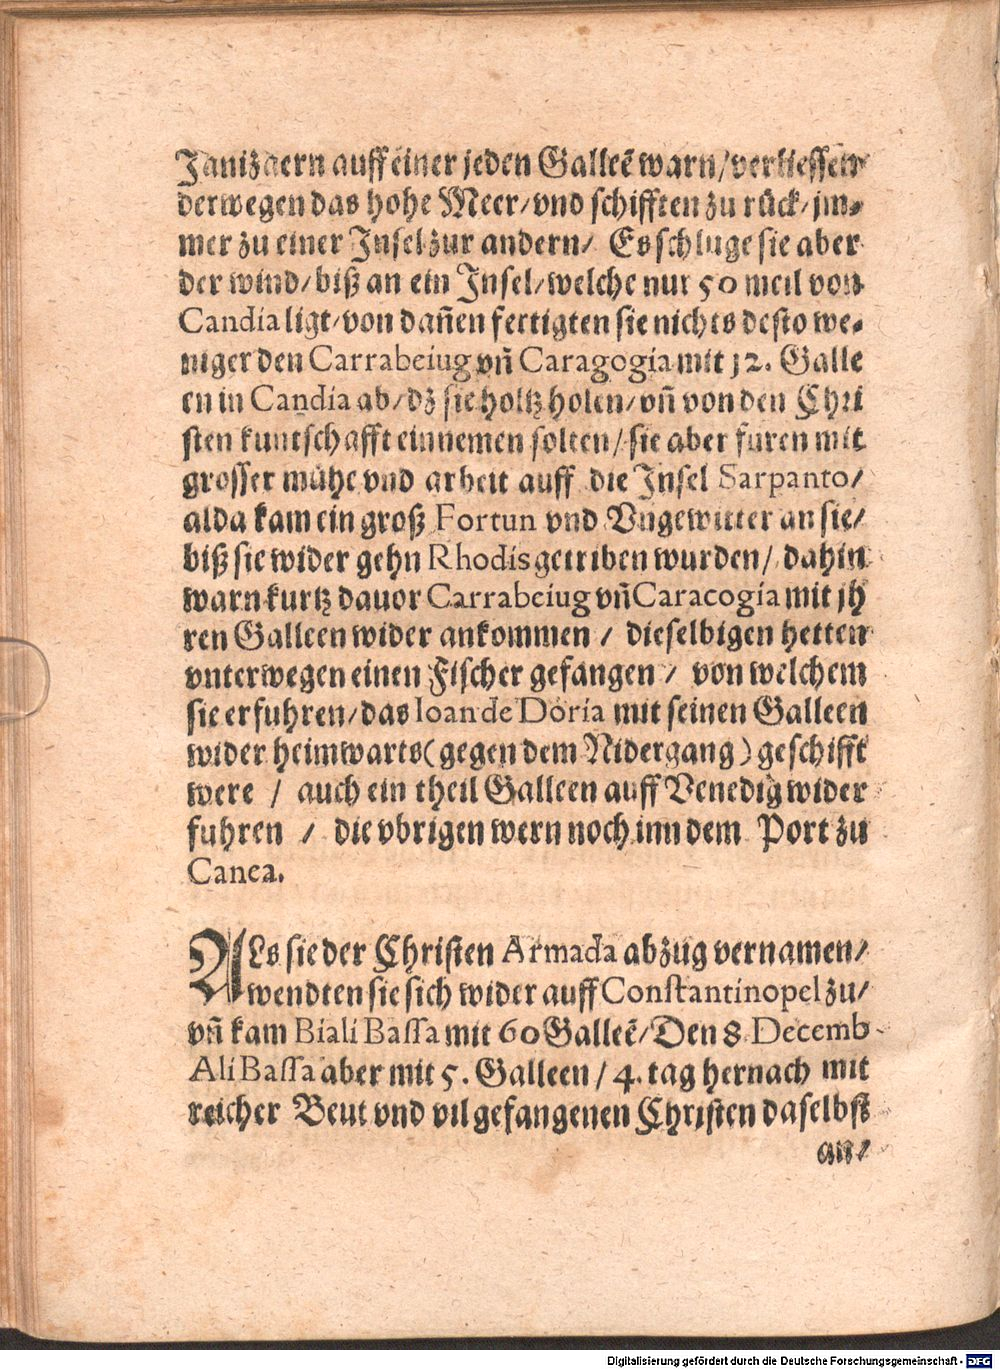 Janizaern auff einer jeden Galleē warn/verliessen
derwegen das hohe Meer/vnd schifften zu rück/jm⸗
mer zu einer Jnsel zur andern/ Es schluge sie aber
der wind/biß an ein Jnsel/welche nur 50 meil von
Candia ligt/von dañen fertigten sie nichts desto we⸗
niger den Carrabeiug vñ Caragogia mit 12. Galle
en in Candia ab/dz sie holtz holen/vñ von den Chri
sten kuntschafft einnemen solten/sie aber furen mit
grosser mühe vnd arbeit auff die Jnsel Sarpanto/
alda kam ein groß Fortun vnd Vngewitter an sie/
biß sie wider gehn Rhodis getriben wurden/ dahin
warn kurtz dauor Carrabeiug vñ Caracogia mit jh
ren Galleen wider ankommen / dieselbigen hetten
vnterwegen einen Fischer gefangen / von welchem
sie erfuhren/das Ioan de Doria mit seinen Galleen
wider heimwarts (gegen dem Nidergang) geschifft
were / auch ein theil Galleen auff Venedig wider
fuhren / die vbrigen wern noch inn dem Port zu
Canea.
ALs sie der Christen Armada abzug vernamen/
wendten sie sich wider auff Constantinopel zu/
vñ kam Biali Bassa mit 60 Galleē/Den 8 Decemb
Ali Bassa aber mit 5. Galleen / 4. tag hernach mit
reicher Beut vnd vil gefangenen Christen daselbst
an/
Digitalisierung gefördert durch die Deutsche Forschungsgemeinschaft - DFG